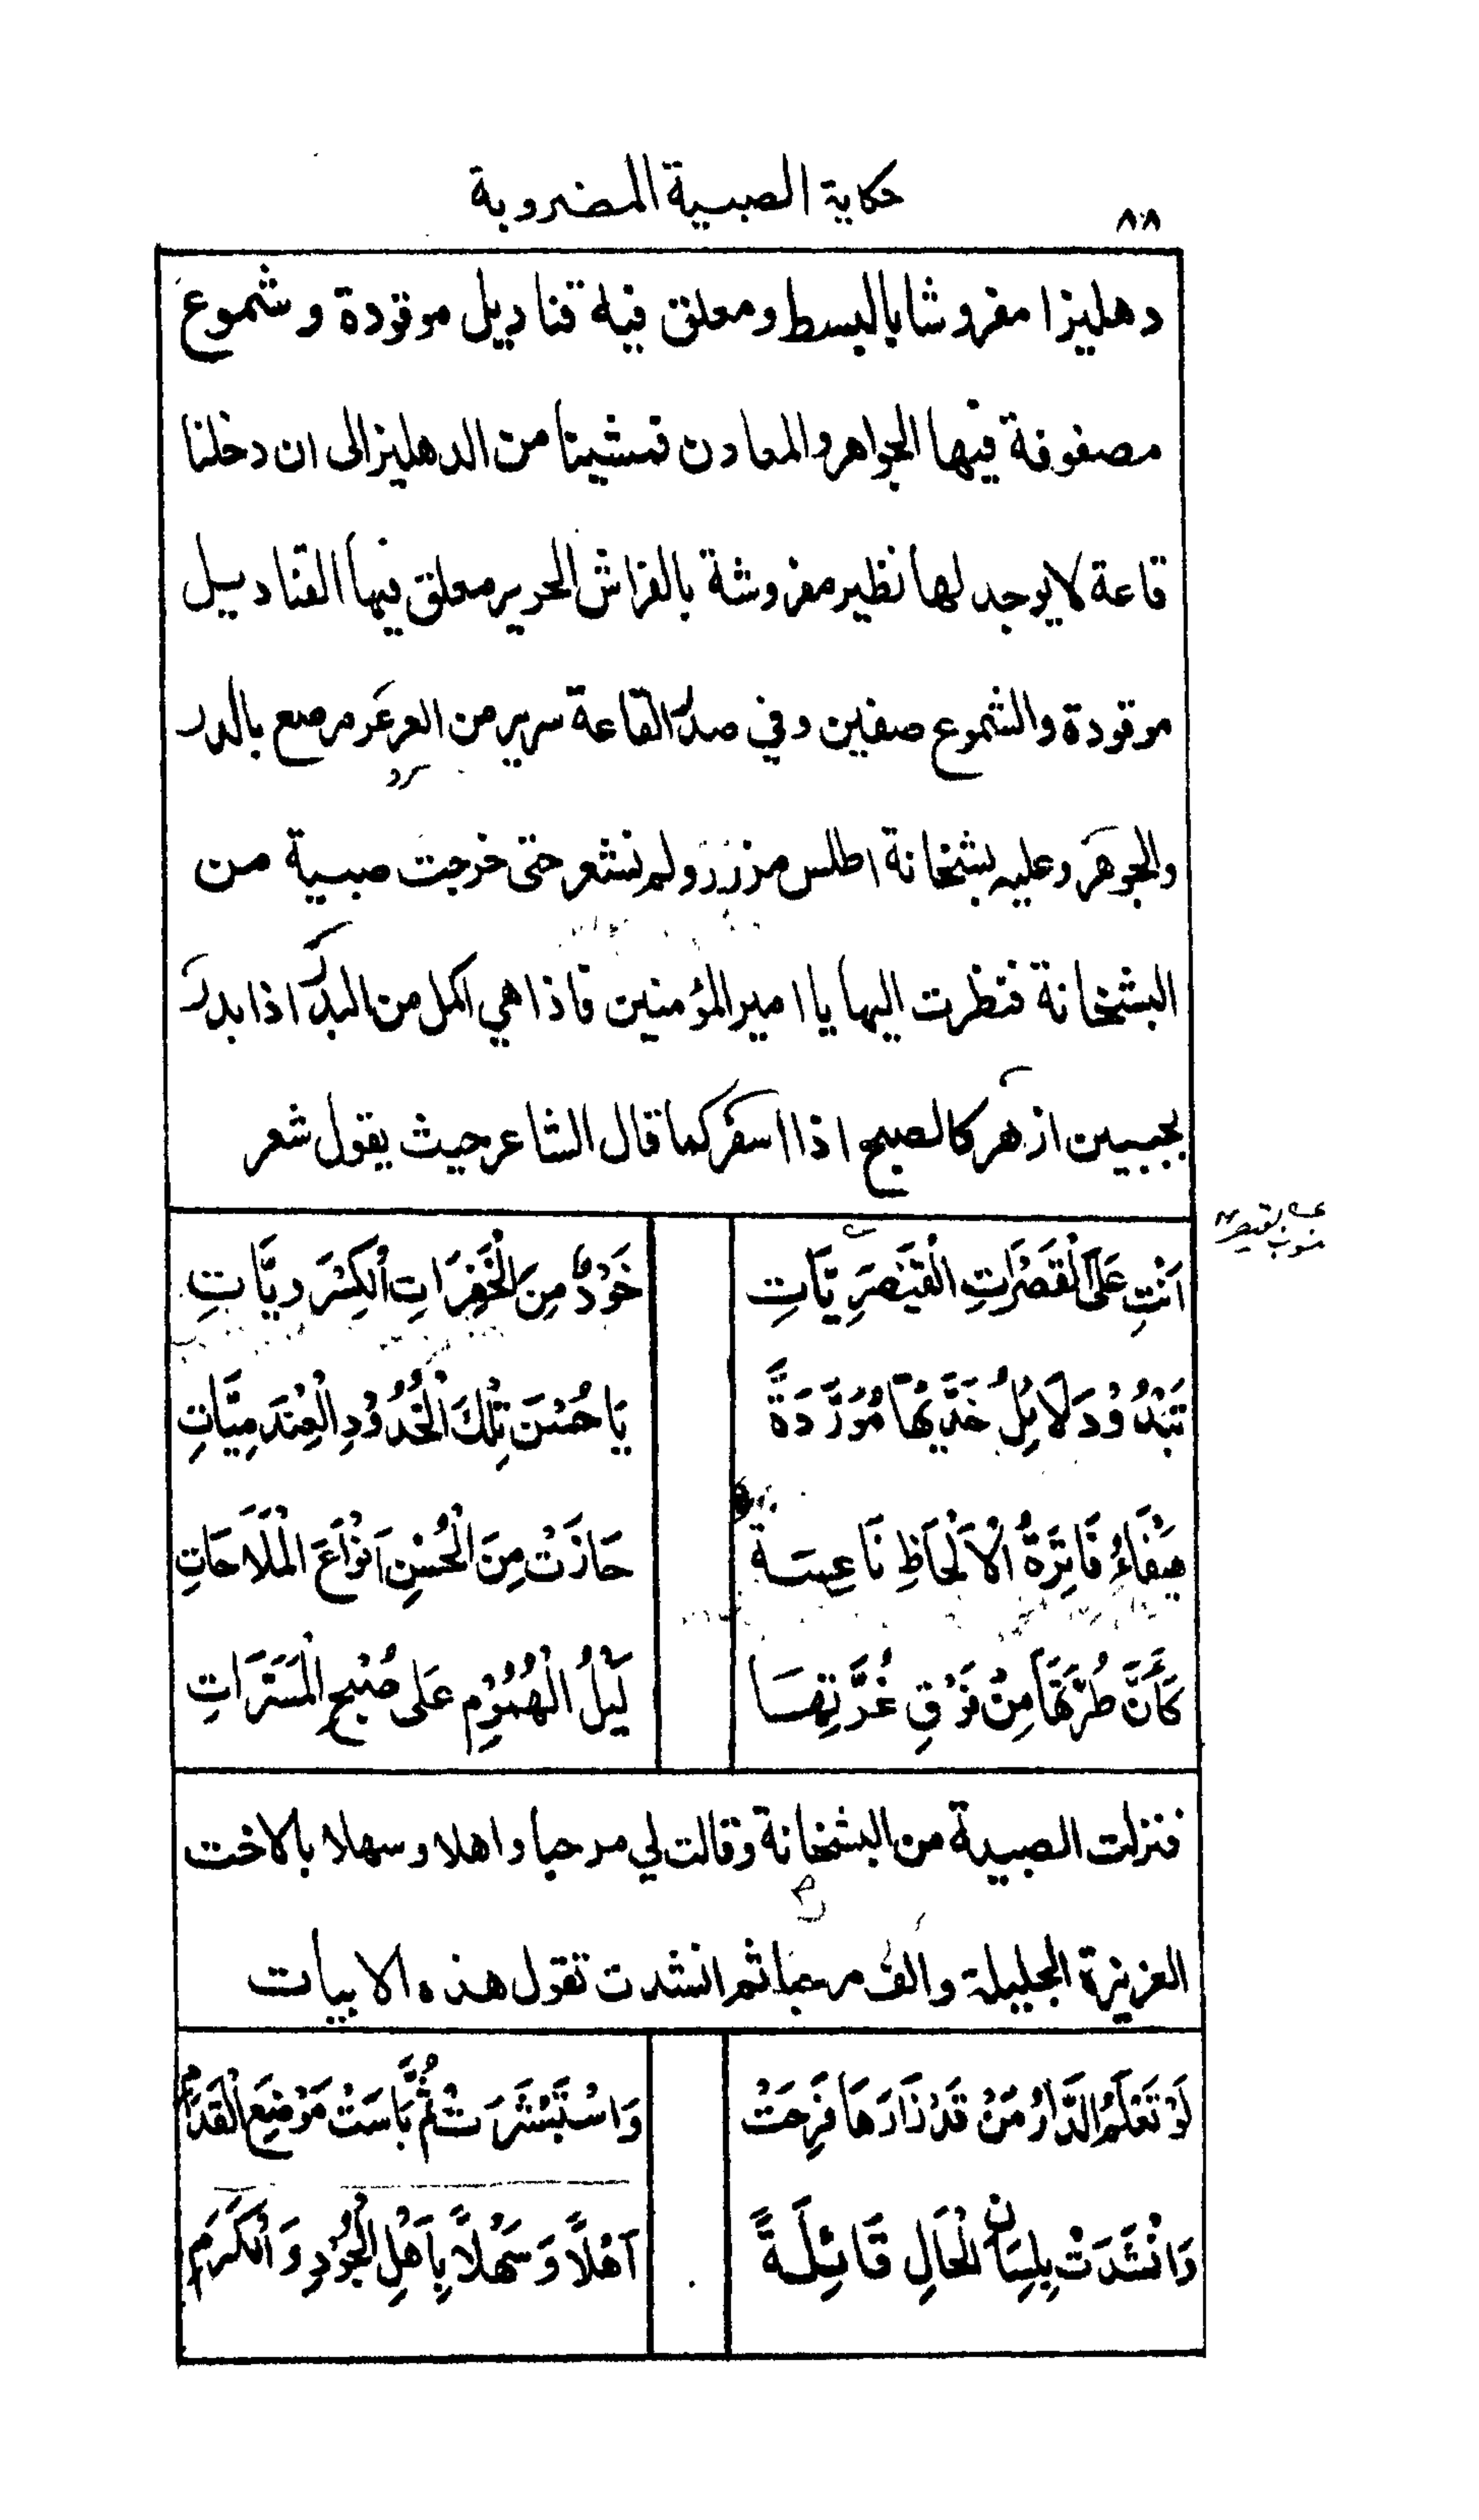 حكاية الصبية المضروبة
٨٨
دهليزا مفروشا بالبسط ومعلق فيه قناديل موقودة وشموع
مصفوفة فيها الجواهر والمعادن فمشينا من الدهليز الى ان دخلنا
قاعة لا يوجد لها نظير مفروشة بالفراش الحرير معلق فيها القناديل
موقودة والشموع صفين وفي صدر القاعة سرير من العرعر مرصع بالدر
والجوهر وعليه بشخانة اطلس مزرر ولم نشعر حتى خرجت صبية من
البشخانة فنظرت اليها يا امير المؤمنين فاذا هي اكمل من البدر اذا بدر
بجبين ازهر كالصبح اذا اسفر كما قال الشاعر حيث يقول شعر
اَتَتْ عَلَى الْقَصَرَاتِ الْقَيْصَرِيَّاتِ خَوْدٌ مِنَ الْخَفِرَاتِ الْكِسْرَوِيَّاتِ
تَبْدُوْ دَلَائِلُ خَدَّيْهَا مُوَرَّدَةً يَا حُسْنَ تِلْكَ الْخُدُوْدِ الْعِنْدَمِيَّاتِ
هَيْفَاءُ فَاتِرَةُ الْاَلْحَاظِ نَاعِسَةٌ حَازَتْ مِنَ الْحُسْنِ اَنْوَاعَ الْمَلَاحَاتِ
كَأَنَّ طُرَّتَهَا مِنْ فَوْقِ غُرَّتِهَا لَيْلُ الْهُمُوْمِ عَلَى صُبْحِ الْمَسَرَّاتِ
فنزلت الصبية من البشخانة وقالت لي مرحبا واهلا وسهلا بالاخت
العزيزة الجليلة والف مرحبا ثم انشدت تقول هذه الابيات
لَوْ تَعْلَمُ الدَّارُ مَنْ قَدْ زَارَهَا فَرِحَتْ وَاسْتَبْشَرَتْ ثُمَّ بَاسَتْ مَوْضِعَ الْقَدَمِ
وَانْشَدَتْ بِلِسَانِ الْحَالِ قَائِلَةً اَهْلًا وَسَهْلًا بِاَهْلِ الْجُوْدِ وَالْكَرَمِ